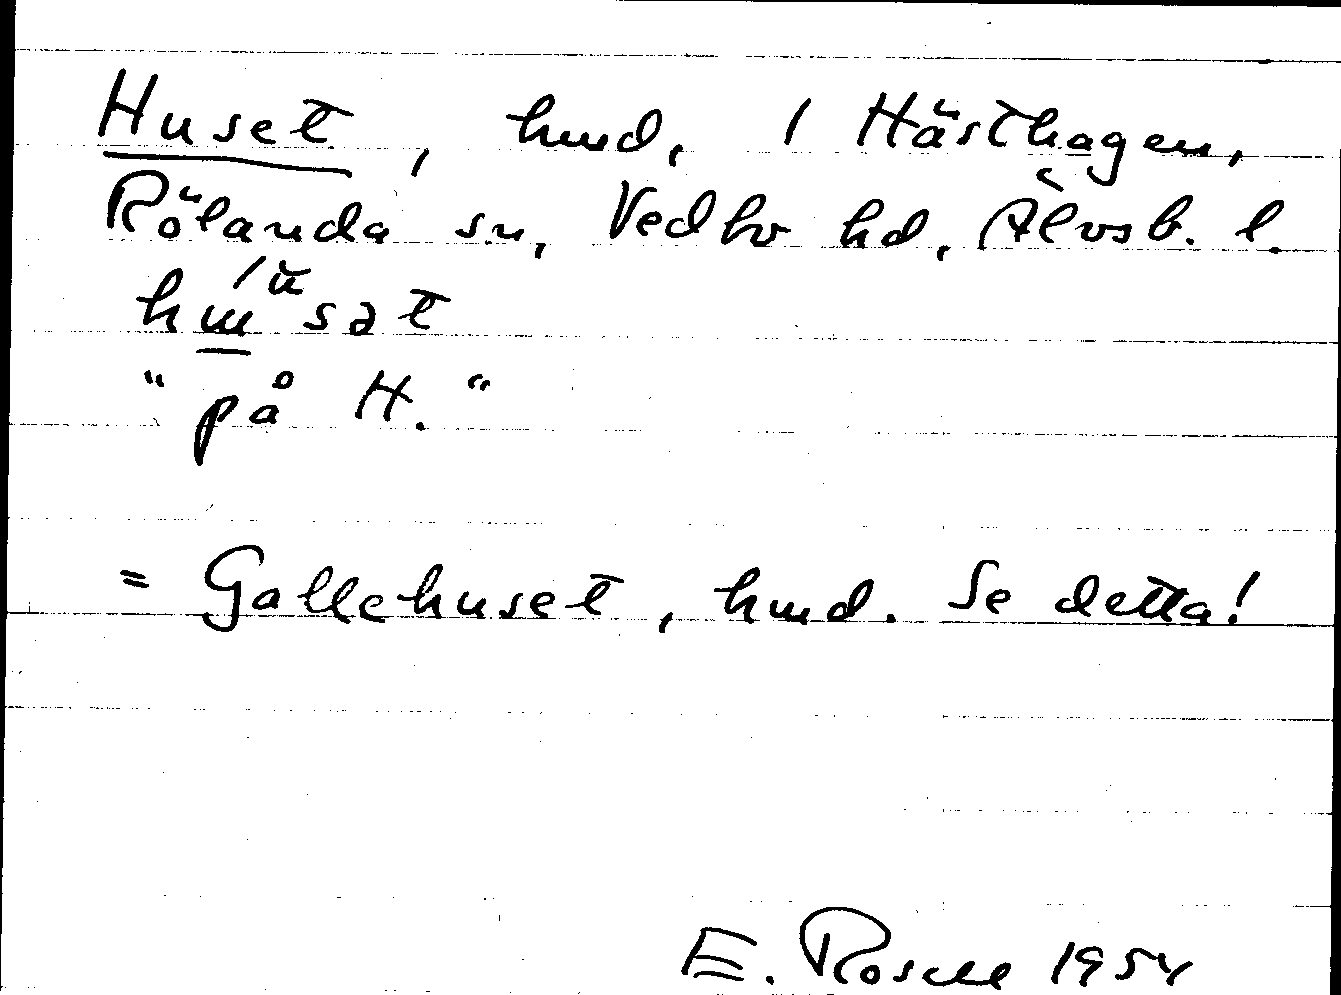 Huset, hmd, 1 Hästhagen,
Rölanda sn, Vedbo hd, Älvsb. l.
husət
"på H."
= Gallehuset, hmd. Se detta!
E. Rosell 1954